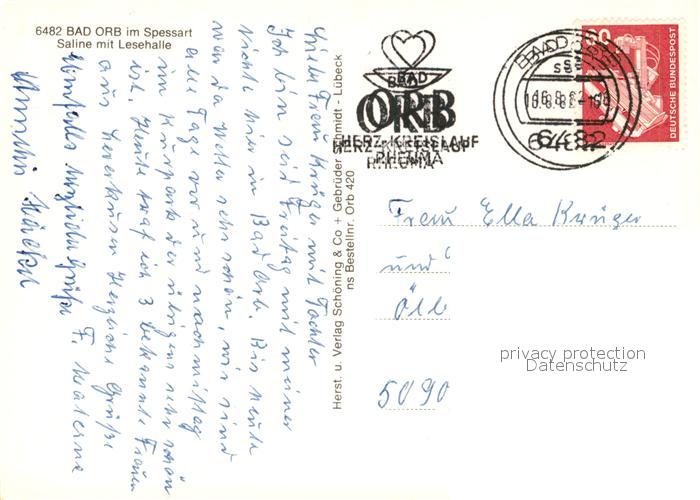 6482 BAD ORB im Spessart
Saline mit Lesehalle
Liebe Frau Krüger mit Tochter
Ich bin seit Freitag mit meiner
Nichte hier in Bad Orb. Bis heute
war das Wetter sehr schön, wir sind
alle Tage vor und nachmittag
im Kurpark der übrigens sehr schön
ist. Heute traf ich 3 bekannte Frauen
aus Leverkusen Herzliche Grüße
F. Materne
Herst. u. Verlag Schöning & Co + Gebrüder Schmidt - Lübeck
ns Bestellnr. Orb 420
BAD
ORB
HERZ-KREISLAUF
RHEUMA
BAD ORB
6482
60
DEUTSCHE BUNDESPOST
Frau Ella Krüger
und
Ölb
5090
privacy protection
Datenschutz